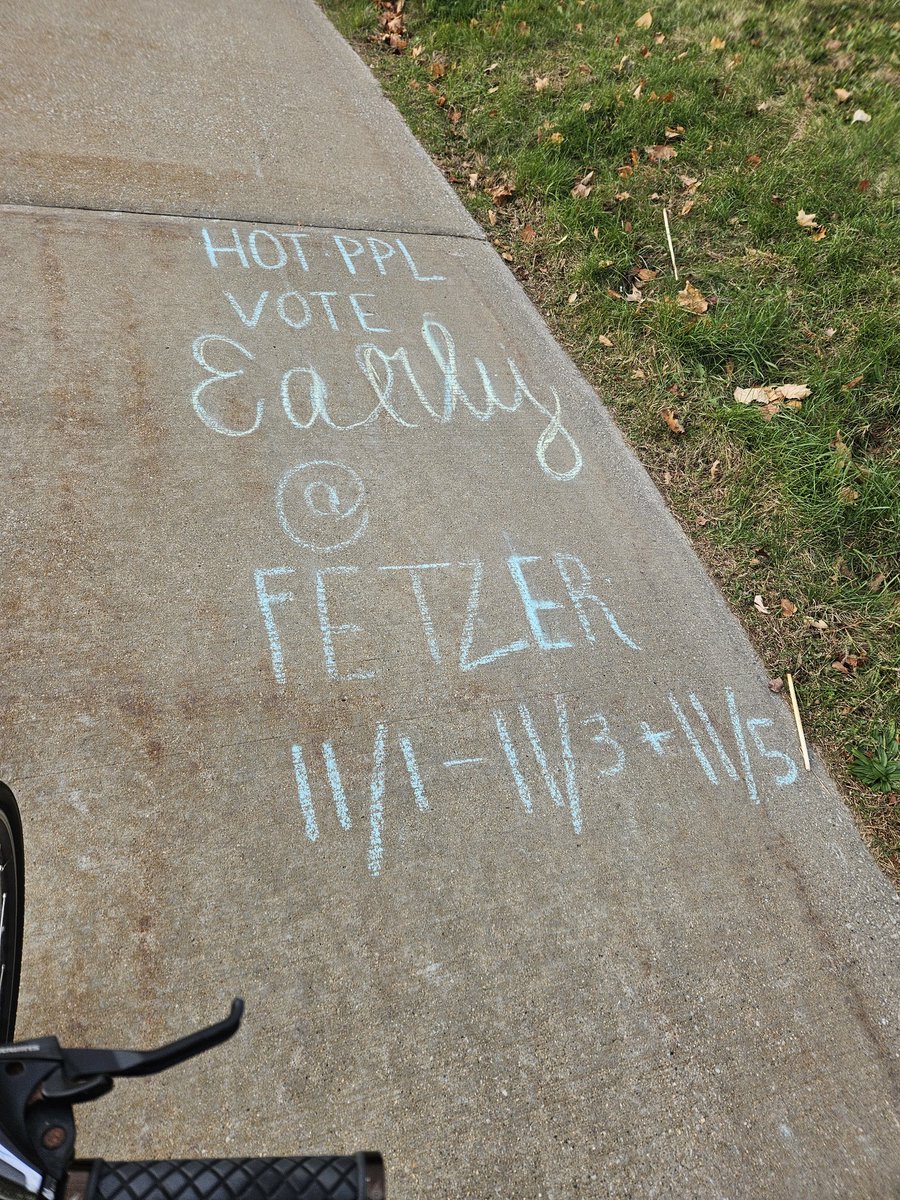 HOT PPL
VOTE
Early
@
FETZER
11/1 - 11/3 + 11/5